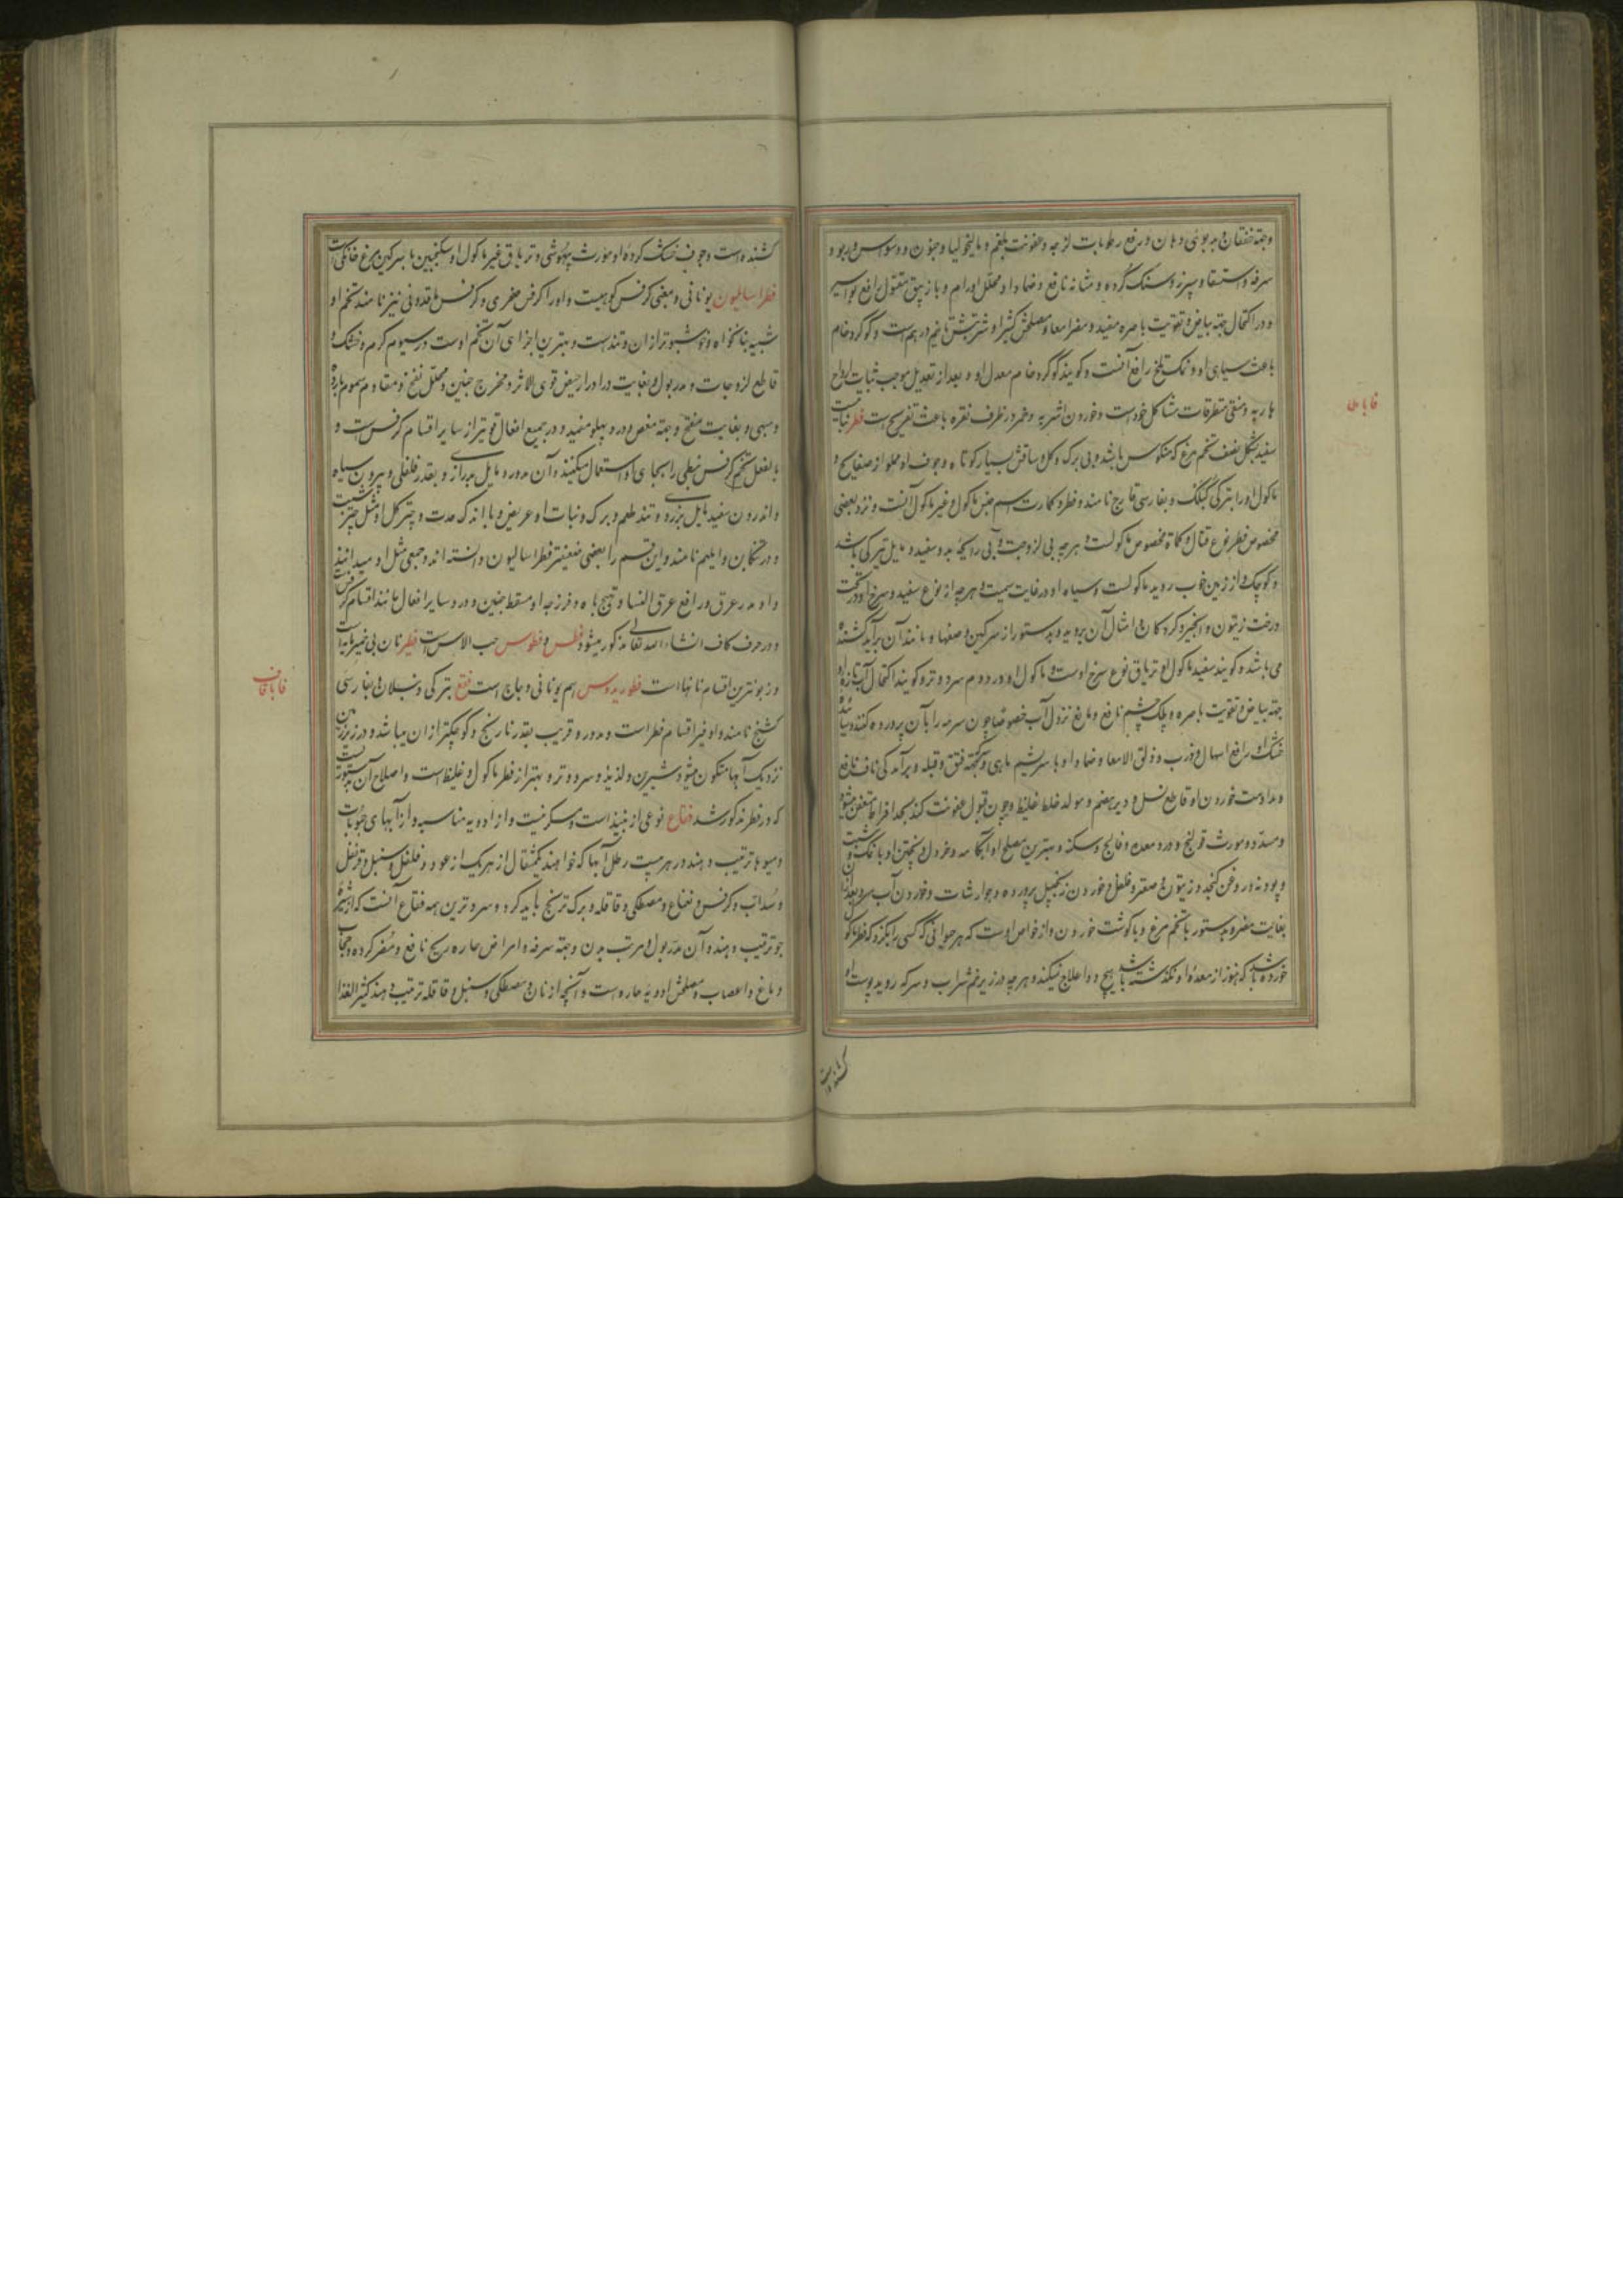 وجهة خفقان و بدبوئی دهان و رفع رطوبات لزجه و عفونت بلغم و مالیخولیا و جنون و وسواس و ربو و
سرفه و استسقا و سپرز و سنک کرده و مثانه نافع و ضماد او محلل اورام و با زیبق مقتول رافع بواسیر
و در اکتحال جهة بیاض و تقویت باصره مفید و مضر امعا و مصلحش کتیرا و شربتش تا نیم درهمست و کوکرد خام
باعث سیاهی او و نمک تلخ رافع آنست و کویند کوکرد خام معدل او و بعد از تعدیل موجب ثبات ارواح
هاربه و منقی متطرقات مشاکل خودست و خوردن اشربه و خمر در ظرف نقره باعث تفریحست فطر نباتیست
سفید بشکل نصف تخم مرغ که منکوس باشد و بی برک و کل و ساقش بسیار کوتاه و جوف او مملو از صفایح و
ماکول او را بترکی کبلک و بفارسی قارچ نامند و فطر و کمات اسم جنس ماکول و غیر ماکول آنست و نزد بعضی
مخصوص فطر نوع قتال و کماة مخصوص ماکولست و هرچه بی لزوجت و بی رایحه بد و سفید و مایل بتیرکی باشد
و کوچک و از زمین خوب روید ماکولست و سیاه او در غایت سمیت و هرچه از نوع سفید و سرخ او در تحت
درخت زیتون و انجیر و کردکان و امثال آن بروید و بدستور از سرکین و عفنها و مانند آن برآید کشنده
می باشد و کویند سفید ماکول او تریاق نوع سرخ اوست و ماکول او در دوم سرد و تر و کویند اکتحال آب تازه او
جهة بیاض و تقویت باصره و پلک چشم نافع و مانع نزول آب خصوصا چون سرمه را بآن پرورده کنند و سائیده
خشک او رافع اسهال و ذرب و زلق الامعا و ضماد او با سریشم ماهی و سرکه جهة فتق و قیله و برآمدکی ناف نافع
و مداومت خوردن او قاطع نسل و دیرهضم و مولد خلط غلیظ و چون قبول عفونت کند بحد افراط متعفن میشود
و مسدد و مورث قولنج و درد معده و فالج و سکته و بهترین مصلح او آبکامه و خردل و پختن او با نمک و شبت
و پودنه و روغن کنجد و زیتون و صعتر و فلفل و خوردن زنجبیل پرورده و جوارشات و خوردن آب سرد بعد از آن
بغایت مضر و بدستور با تخم مرغ و با کوشت خوردن و از خواص اوست که هر حیوانی که کسی را بکزد که فطر ماکول
خورده باشد که هنوز از معده او نکذشته باشد هیچ دوا علاج نمیکند و هرچه در زیر خم شراب و سرکه روید پوست او
فا با طا
کشنده است
کشنده است و جوف خشک کرده او مورث بیهوشی و تریاق غیر ماکول او سکنجبین با سرکین مرغ خانکی است
فطراسالیون یونانی و بمعنی کرفس کوهیست و او را کرفس صخری و کرفس ماقدونی نیز نامند تخم او
شبیه بنانخواه و خوشبوتر از ان و تندست و بهترین اجزای آن تخم اوست در سیوم کرم و خشک و
قاطع لزوجات و مدر بول و بغایت در ادرار حیض قوی الاثر و مخرج جنین و محلل نفخ و مقاوم سموم بارده
و مبهی و بغایت مفتح و جهة مغص و درد پهلو مفید و در جمیع افعال قویتر از سایر اقسام کرفس است و
بالفعل تخم کرفس نبطی را بجای او استعمال میکنند و آن مدور و مایل بدرازی و بقدر فلفلی و بیرون سیاه
و اندرون سفید مایل بزردی و تند طعم و برک و نبات او عریض و با اندک حدت و چتر کل او مثل چتر شبت
و در تنکابن وایلهم نامند و این قسم را بعضی ضعیفتر فطراسالیون دانسته اند و جمعی مثل او میدانند
و او مدر عرق و رافع عرق النسا و مهیج باه و فرزجه او مسقط جنین و در سایر افعال مانند اقسام کرفس
و در حرف کاف انشاء الله تعالی مذکور میشود فطس و فطوس حب الاس است فطیر نان بی خمیرمایه است
و زبونترین اقسام نانها است فطوریدوس اسم یونانی دجاج است فقع بترکی دنبلان و بفارسی
کشنج نامند و او غیر اقسام فطر است و مدور و قریب بقدر نارنج و کوچکتر از ان میباشد و در زیر زمین
نزدیک آبها متکون میشود و شیرین و لذیذ و سرد و تر و بهتر از فطر ماکول و غلیظ است و اصلاح آن بدستوریست
که در فطر مذکور شد فقاع نوعی از نبیذ است و مسکر نیست و از ادویه مناسبه و از آبهای حبوبات
و میوها ترتیب دهند و در هر بیست رطل آبها که خواهند یکمثقال از هر یک از عود و فلفل و سنبل و قرنفل
و سداب و کرفس و نعناع و مصطکی و قاقله و برک ترنج باید کرد و سردترین همه فقاع آنست که از شیره
جو ترتیب دهند و آن مدر بول و مرطب بدن و جهة سرفه و امراض حاره ریه نافع و مضر کرده و حجاب
دماغ و اعصاب و مصلحش ادویه حاره است و آنچه از نان و مصطکی و سنبل و قاقله ترتیب دهند کثیر الغذا
فا با قاف